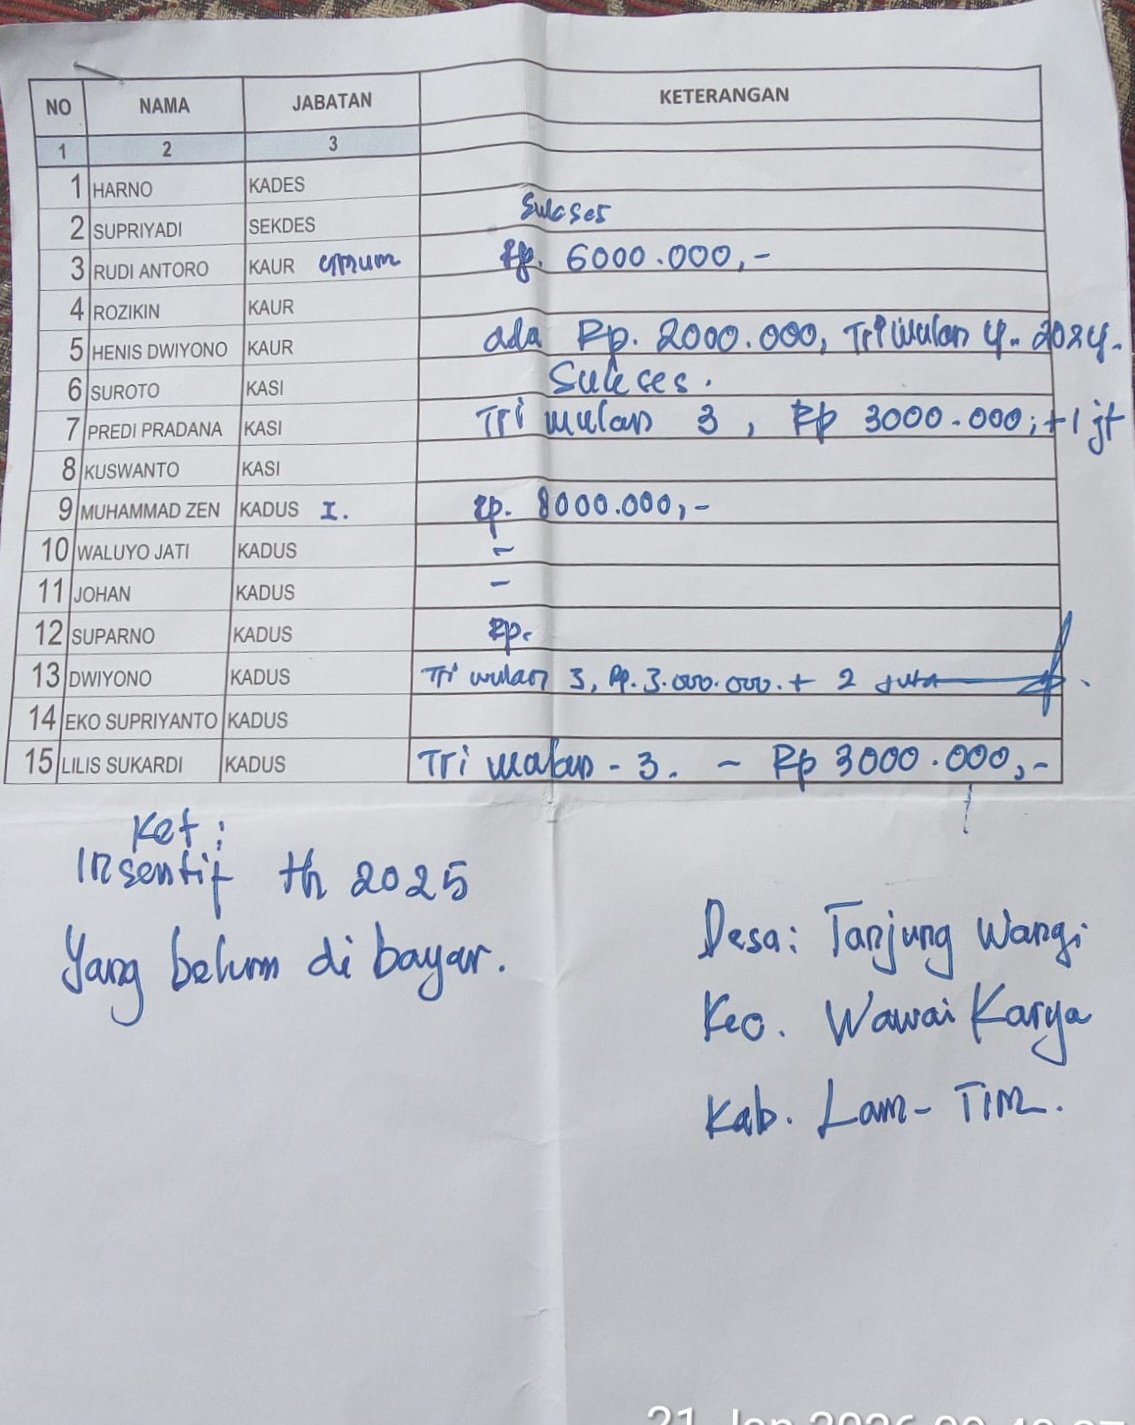 NO NAMA JABATAN KETERANGAN
1 2 3
1 HARNO KADES
2 SUPRIYADI SEKDES Sukses
3 RUDI ANTORO KAUR umum Rp. 6000.000,-
4 ROZIKIN KAUR
5 HENIS DWIYONO KAUR ada Rp. 2000.000, Tri wulan 4-2024.
6 SUROTO KASI Sukses.
7 PREDI PRADANA KASI Tri wulan 3, Rp 3000.000; +1 jt
8 KUSWANTO KASI
9 MUHAMMAD ZEN KADUS I. Rp. 8000.000,-
10 WALUYO JATI KADUS -
11 JOHAN KADUS -
12 SUPARNO KADUS Rp.
13 DWIYONO KADUS Tri wulan 3, Rp. 3.000.000. + 2 juta
14 EKO SUPRIYANTO KADUS
15 LILIS SUKARDI KADUS Tri wulan - 3. - Rp 3000.000,-
Ket:
Insentif th 2025
Yang belum di bayar.
Desa: Tanjung Wangi
Kec. Wawai Karya
Kab. Lam-Tim.